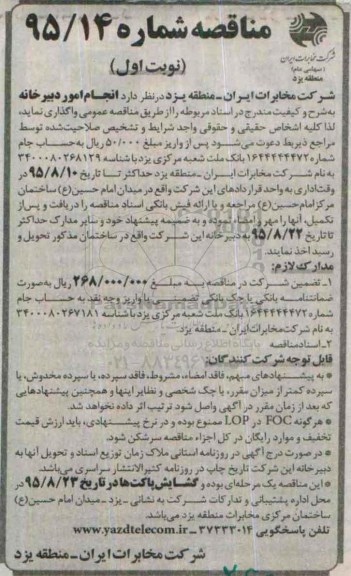 مناقصه شماره ۹۵/۱۴
(نوبت اول)
شرکت مخابرات ایران
(سهامی عام)
منطقه یزد
شرکت مخابرات ایران ـ منطقه یزد در نظر دارد انجام امور دبیرخانه
به شرح و کیفیت مندرج در اسناد مربوطه را از طریق مناقصه عمومی واگذاری نماید،
لذا کلیه اشخاص حقیقی و حقوقی واجد شرایط و تشخیص صلاحیت شده توسط
مراجع ذیربط دعوت می‌شود پس از واریز مبلغ ۵۰/۰۰۰ ریال به حساب جام
شماره ۱۶۴۴۴۴۴۴۷۲ بانک ملت شعبه مرکزی یزد با شناسه ۳۴۰۰۰۸۰۲۶۸۱۲۹
به نام شرکت مخابرات ایران ـ منطقه یزد حداکثر تا تاریخ ۹۵/۸/۱۰ در
وقت اداری به واحد قراردادهای این شرکت واقع در میدان امام حسین(ع) ساختمان
مرکز امام حسین(ع) مراجعه و با ارائه فیش بانکی اسناد مناقصه را دریافت و پس از
تکمیل، آنها را مهر و امضاء نموده و به ضمیمه پیشنهاد خود و سایر مدارک حداکثر
تا تاریخ ۹۵/۸/۲۲ به دبیرخانه این شرکت واقع در ساختمان مذکور تحویل و
رسید اخذ نمایند.
مدارک لازم:
۱ـ تضمین شرکت در مناقصه به مبلغ ۲۶۸/۰۰۰/۰۰۰ ریال به صورت
ضمانتنامه بانکی یا چک بانکی تضمینی یا واریز وجه نقد به حساب جام
شماره ۱۶۴۴۴۴۴۴۷۲ بانک ملت شعبه مرکزی یزد با شناسه ۳۴۰۰۰۸۰۲۶۷۱۸۱
به نام شرکت مخابرات ایران ـ منطقه یزد.
۲ـ اسناد مناقصه
قابل توجه شرکت کنندگان:
* به پیشنهادهای مبهم، فاقد امضاء، مشروط، فاقد سپرده، با سپرده مخدوش، با
سپرده کمتر از میزان مقرر، با چک شخصی و نظایر اینها و همچنین پیشنهادهایی
که بعد از زمان مقرر در آگهی واصل شود ترتیب اثر داده نخواهد شد.
* هرگونه FOC در LOP ممنوع بوده و در نرخ پیشنهادی، باید ارزش قیمت
تخفیف و موارد رایگان در کل اجزاء مناقصه سرشکن شود.
* در صورت درج آگهی در روزنامه استانی ملاک زمان توزیع اسناد و تحویل آنها به
دبیرخانه این شرکت تاریخ چاپ در روزنامه کثیرالانتشار سراسری می‌باشد.
* این مناقصه یک مرحله‌ای بوده و گشایش پاکت‌ها در تاریخ ۹۵/۸/۲۳ در
محل اداره پشتیبانی و تدارکات شرکت به نشانی ـ یزد ـ میدان امام حسین(ع)
ساختمان مرکزی مخابرات منطقه یزد می‌باشد.
تلفن پاسخگویی ۳۷۲۳۳۰۱۴ ـ www.yazdtelecom.ir
شرکت مخابرات ایران ـ منطقه یزد